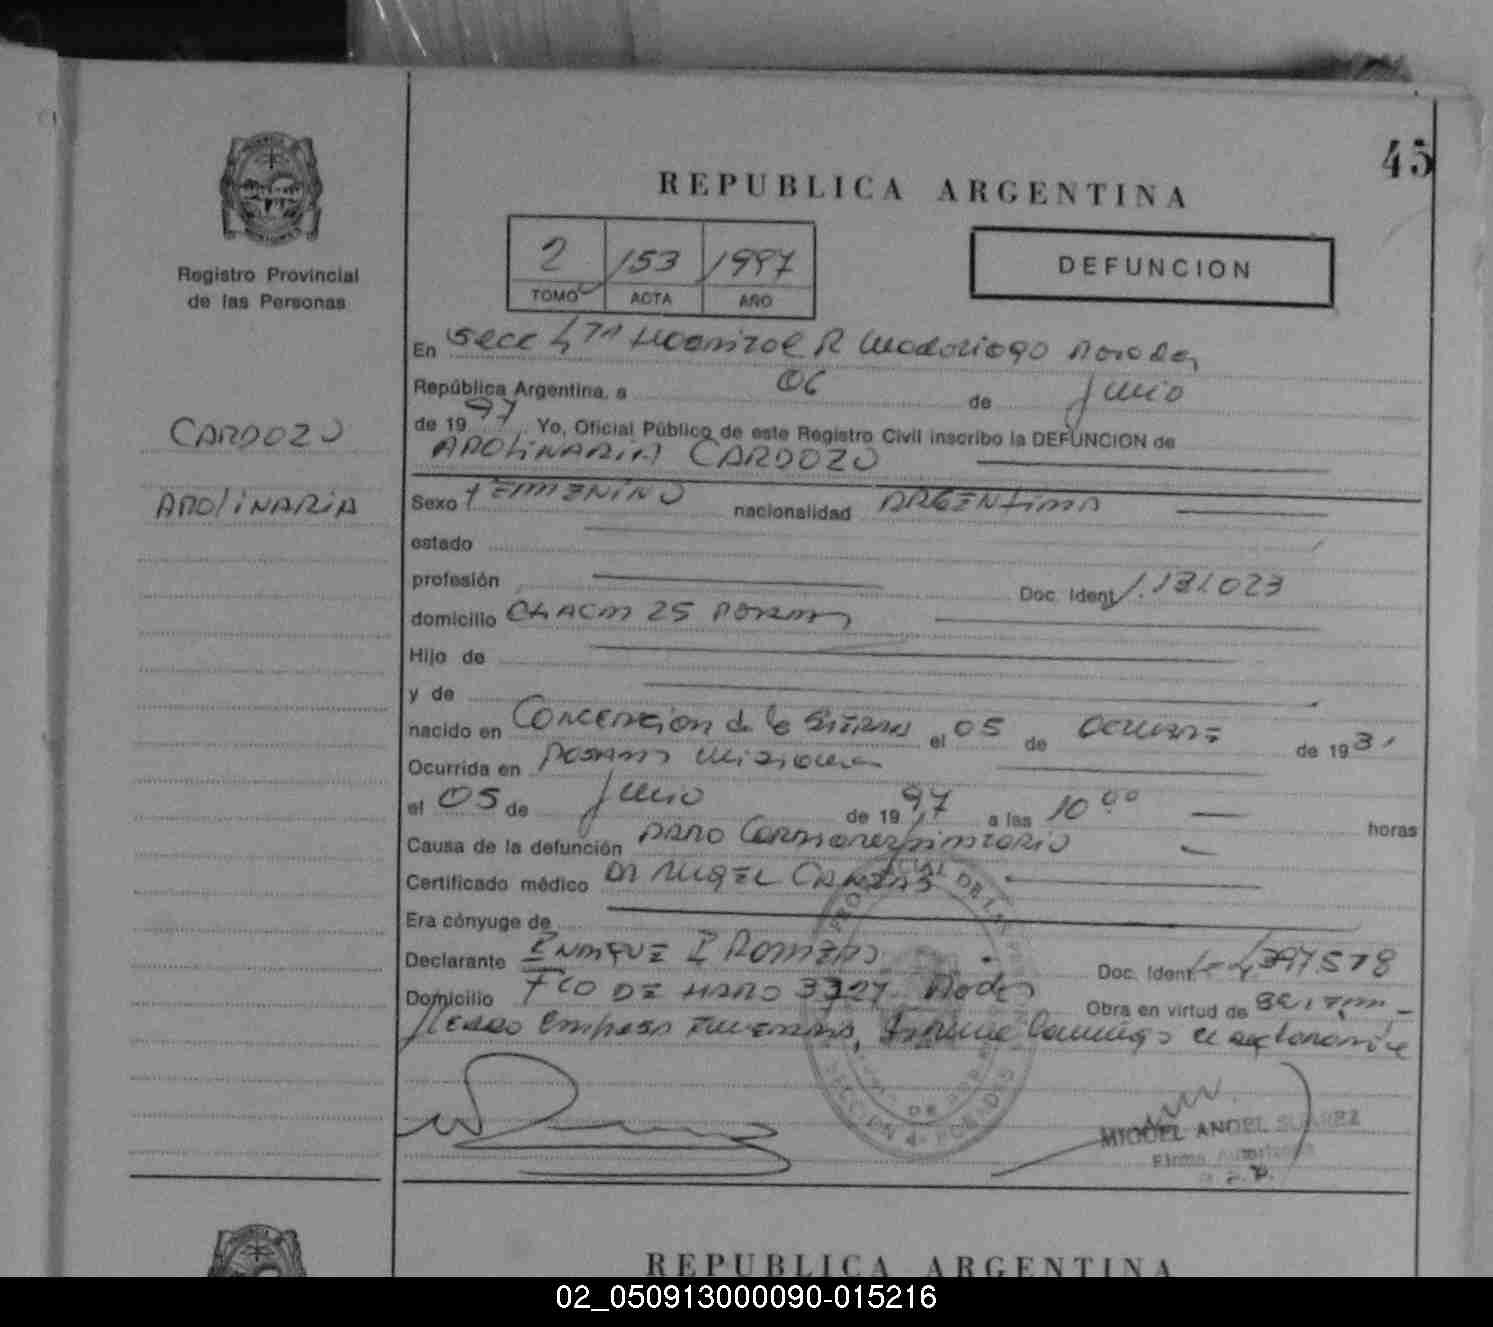 45
REPUBLICA ARGENTINA
2 153 1997
TOMO ACTA AÑO
DEFUNCION
Registro Provincial
de las Personas
CARDOZO
APOLINARIA
En Secc 4ta Hospital R Madariaga Posadas
República Argentina, a 06 de Junio
de 1997. Yo, Oficial Público de este Registro Civil inscribo la DEFUNCION de
APOLINARIA CARDOZO
Sexo FEMENINO nacionalidad ARGENTINA
estado
profesión Doc. Ident. 1.131.023
domicilio CHACRA 25 POSADAS
Hijo de
y de
nacido en Concepcion de la Sierra el 05 de OCTUBRE de 1931
Ocurrida en POSADAS Misiones
el 05 de Junio de 1997 a las 10 00 horas
Causa de la defunción PARO CARDIORESPIRATORIO
Certificado médico DR MIGUEL
Era cónyuge de
Declarante ENRIQUE I ROMERO Doc. Ident.
Domicilio FCO DE HARO Obra en virtud de SER
Empresa
SECCION 4ª POSADAS
MIGUEL ANGEL SUAREZ
Firma Autorizada
REPUBLICA ARGENTINA
02_050913000090-015216